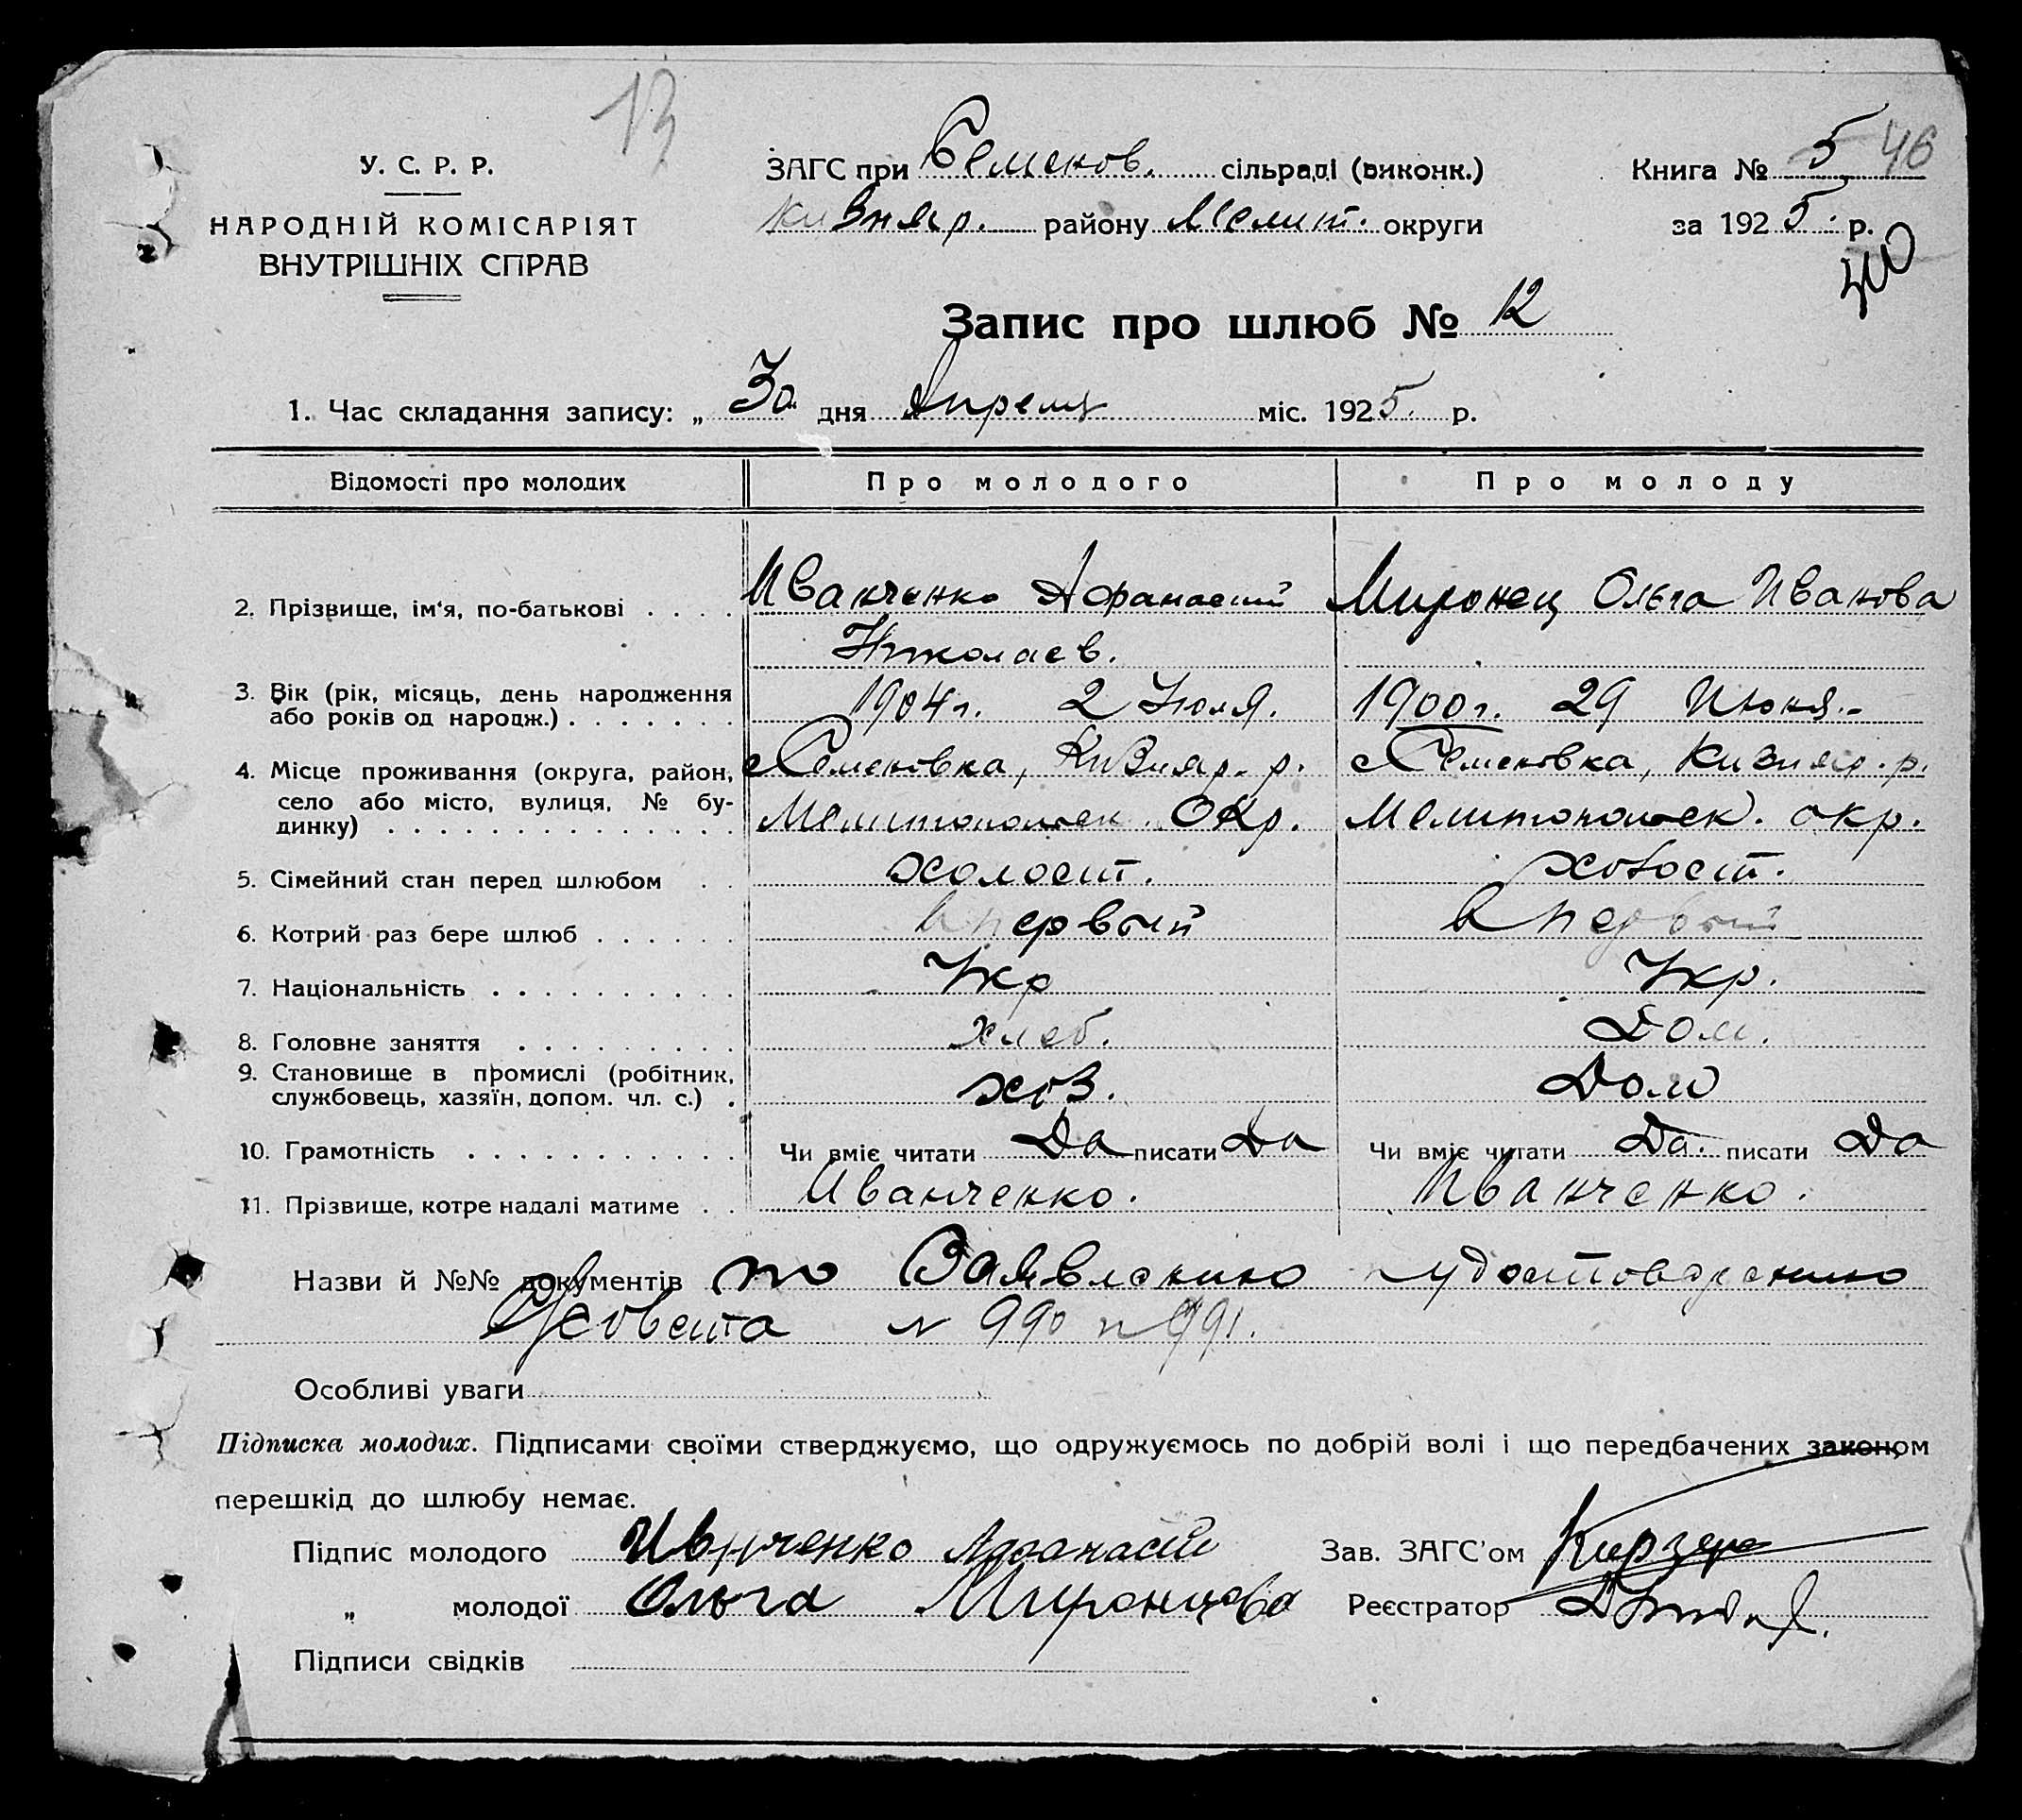 13
У. С. Р. Р.
НАРОДНІЙ КОМІСАРІЯТ
ВНУТРІШНІХ СПРАВ
ЗАГС при Семенов. сільраді (виконк.)
Кизияр. району Мелит. округи
Книга № 5 46
за 1925 р.
40
Запис про шлюб № 12
1. Час складання запису: „ 30 дня Апреля міс. 1925 р.
Відомості про молодих Про молодого Про молоду
2. Прізвище, ім'я, по-батькові . . . . Иванченко Афанасий Миронец Ольга Иванова
Николаев.
3. Вік (рік, місяць, день народження
або років од народж.) . . . . . . . 1904 г. 2 Июля. 1900 г. 29 Июня.
4. Місце проживання (округа, район, с Семеновка, Кизияр. р. с Семеновка, Кизияр. р.
село або місто, вулиця, № бу-
динку) . . . . . . . . . . . . . . Мелитопольск. Окр. Мелитопольск. окр.
5. Сімейний стан перед шлюбом . . холост. холост.
6. Котрий раз бере шлюб . . . . . . в первый в первый
7. Національність . . . . . . . . . . Укр Укр.
8. Головне заняття . . . . . . . . . хлеб. Дом.
9. Становище в промислі (робітник,
службовець, хазяїн, допом. чл. с.) . хоз. Дом
10. Грамотність . . . . . . . . . . . Чи вміє читати Да писати Да Чи вміє читати Да. писати Да
11. Прізвище, котре надалі матиме . . Иванченко. Иванченко.
Назви й №№ документів по Заявлению удостоверению
С/совета № 990 и 991.
Особливі уваги
Підписка молодих. Підписами своїми стверджуємо, що одружуємось по добрій волі і що передбачених законом
перешкід до шлюбу немає.
Підпис молодого Иванченко Афанасий Зав. ЗАГС'ом
„ молодої Ольга Миронцова Реєстратор
Підписи свідків